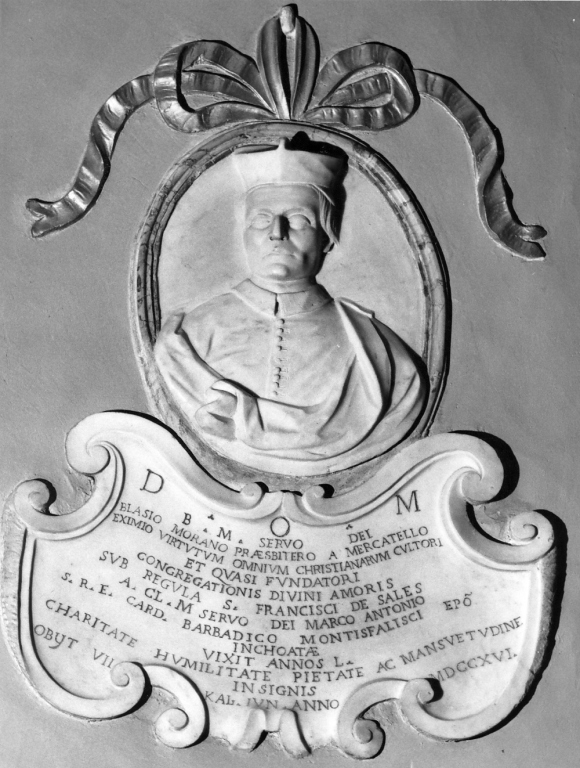 D O M
B. M. SERVO DEI
BLASIO MORANO PRÆSBITERO A MERCATELLO
EXIMIO VIRTUTUM OMNIUM CHRISTIANARUM CVLTORI
ET QVASI FVNDATORI
CONGREGATIONIS DIVINI AMORIS
SVB REGVLA S. FRANCISCI DE SALES
A. CL. M SERVO DEI MARCO ANTONIO
S. R. E. CARD. BARBADICO MONTISFALISCI EPÕ
INCHOATÆ
VIXIT ANNOS L.
CHARITATE HVMILITATE PIETATE AC MANSVETVDINE
INSIGNIS
OBIJT VII KAL. IVN. ANNO MDCCXVI.